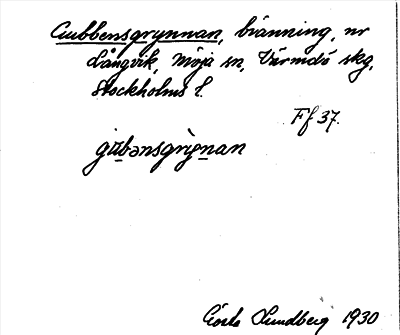 Gubbensgrynnan, bränning, nr
Långvik, Möja sn, Värmdö skg,
Stockholms l.
Ff 37.
gu̱bənsgrỳn̲an
Gösta Lundberg 1930